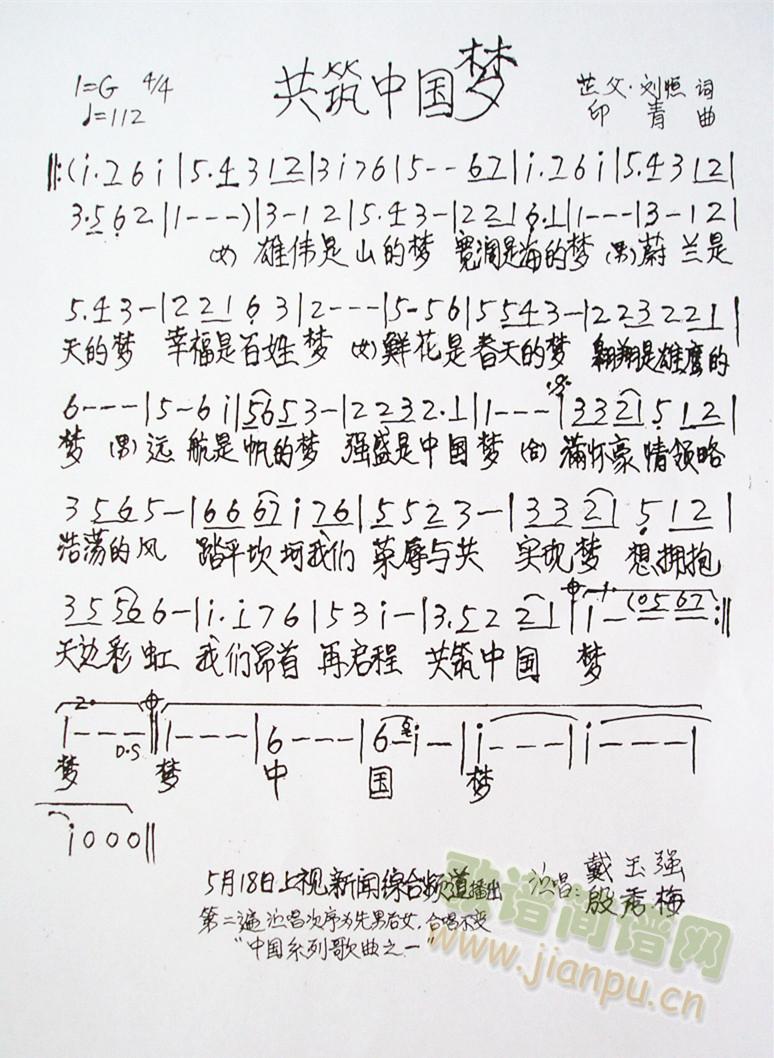 共筑中国梦
1=G 4/4
♩=112
芷父·刘恒 词
印青 曲
‖:(i·761|5·4312|3i76|5--67|i·76i|5·4312|
3·562|1---)|3-12|5·43-|2216·1|1---|3-12|
(女)雄伟是山的梦 宽阔是海的梦 (男)蔚兰是
5·43-|22163|2---|5-56|5543-|223221|
天的梦 幸福是百姓梦 (女)鲜花是春天的梦 翱翔是雄鹰的
6---|5-6i|5653-|2232·1|1---|3321512|
梦 (男)远航是帆的梦 强盛是中国梦 (合)满怀豪情领略
3565-|6667i76|5523-|3321512|
浩荡的风 踏平坎坷我们 荣辱与共 实现梦想拥抱
35566-|i·i76|53i-|3·52221|1-(0567:‖
天边彩虹 我们昂首 再启程 共筑中国 梦
2.
1---|1---|6---|6-i--|i---|i---|
D.S
梦 梦 中 国 梦
i000‖
5月18日上视新闻综合频道播出 演唱:戴玉强
殷秀梅
第二遍演唱次序为先男后女,合唱不变
"中国系列歌曲之一"
歌谱简谱网
www.jianpu.cn